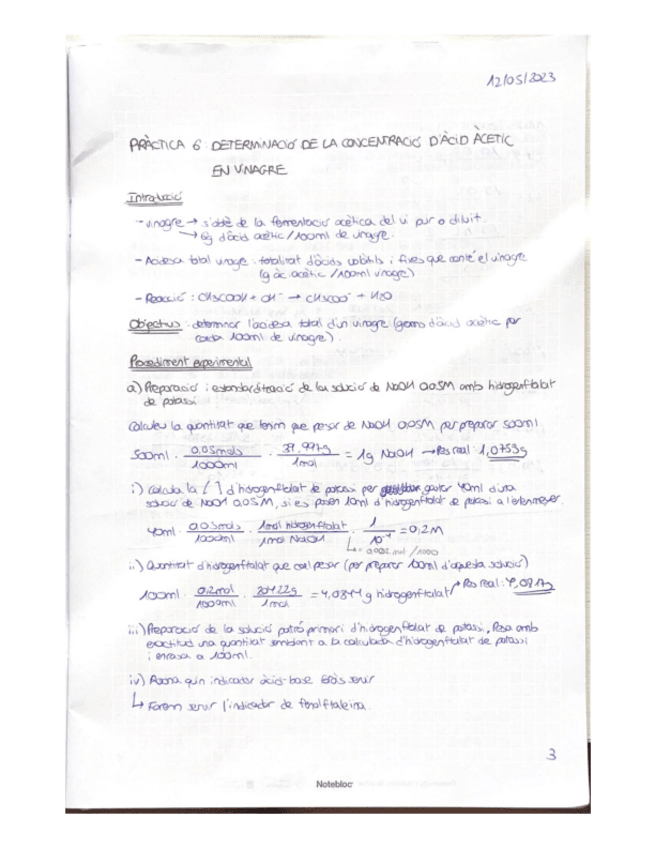 12/05/2023
PRÀCTICA 6: DETERMINACIÓ DE LA CONCENTRACIÓ D'ÀCID ÀCETIC
EN VINAGRE
Introducció
- vinagre → s'obté de la fermentació acètica del vi pur o diluit.
→ 6g d'àcid acètic / 100ml de vinagre.
- Acidesa total vinagre: totalitat d'àcids volàtils i fixes que conté el vinagre
(g àc. acètic / 100ml vinagre)
- Reacció: CH3COOH + OH⁻ → CH3COO⁻ + H2O
Objectius: determinar l'acidesa total d'un vinagre (grams d'àcid acètic per
cada 100ml de vinagre).
Procediment experimental
a) Preparació i estandardització de la solució de NaOH 0.05M amb hidrogenftalat
de potassi
Calculeu la quantitat que tenim que pesar de NaOH 0,05M per preparar 500ml
500ml · 0,05mols/1000ml · 39,997g/1mol = 1g NaOH → Pes real: 1,0753g
i) Calcula la [ ] d'hidrogenftalat de potassi per gastar 40ml d'una
solució de NaOH 0,05M, si es posen 10ml d'hidrogenftalat de potassi a l'erlenmeyer.
40ml · 0,05mols/1000ml · 1mol hidrogenftalat/1mol NaOH · 1/10⁻² = 0,2M
= 0.002 mol /
ii) Quantitat d'hidrogenftalat que cal pesar (per preparar 100ml d'aquesta solució)
100ml · 0,2mol/1000ml · 204,22g/1mol = 4,0844 g hidrogenftalat → Pes real:
iii) Preparació de la solució patró primari d'hidrogenftalat de potassi, Pesa amb
exactitud una quantitat semblant a la calculada d'hidrogenftalat de potassi
i enrasa a 100ml.
iv) Raona quin indicador àcid-base faràs servir
↳ Farem servir l'indicador de fenolftaleina.
3
Notebloc